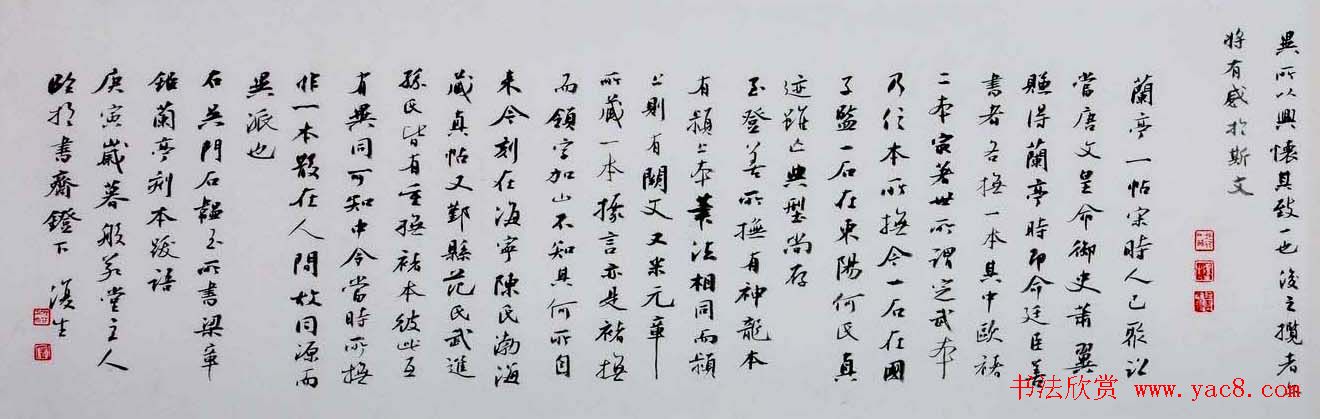 異所以興懷其致一也後之攬者亦
將有感於斯文
蘭亭一帖宋時人已聚訟
當唐文皇命御史蕭翼
賺得蘭亭時即命廷臣善
書者各撫一本其中歐褚
二本寅著世所謂定武本
乃信本所撫今一石在國
子監一石在東陽何氏真
迹雖亡典型尚存
至登善所撫有神龍本
有潁上本筆法相同而潁
上則有闕文又米元章
所藏一本據言亦是褚撫
而領字加山不知其何所自
來今刻在海寧陳氏渤海
藏真帖又鄞縣范氏武進
孫氏皆有重撫褚本彼此互
有異同可知中令當時所撫
非一本散在人間故同源而
異派也
右吳門石韞玉所書梁章
鉅蘭亭刻本跋語
庚寅歲暮般若堂主人
臨於書齋鐙下 漢生
书法欣赏 www.yac8.com